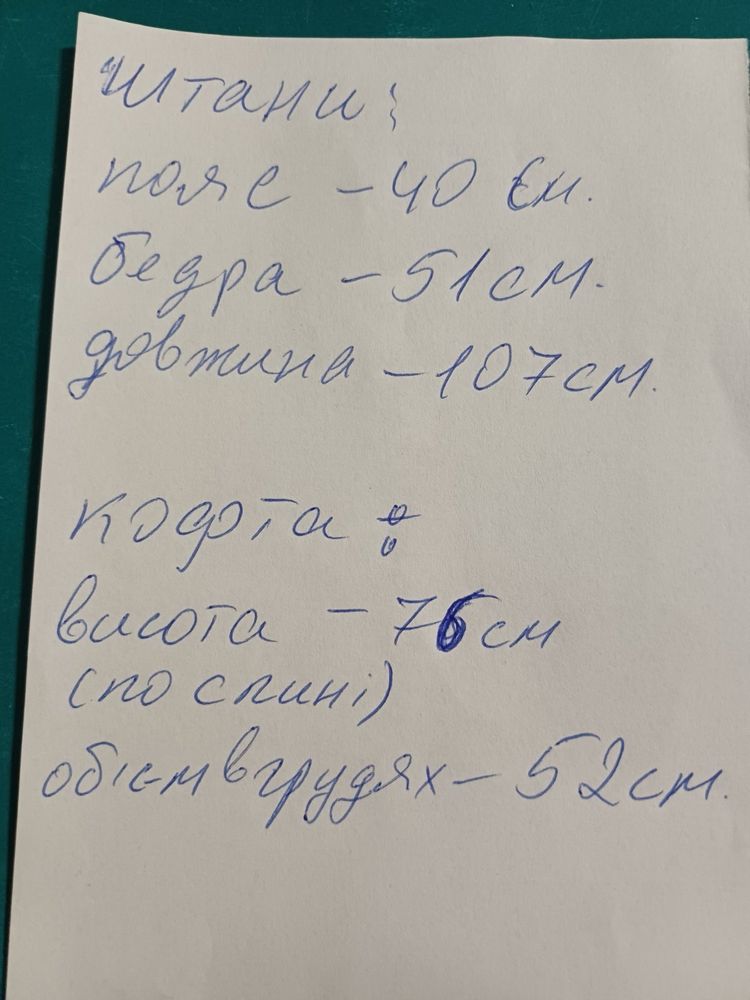 Штани:
пояс - 40 см.
бедра - 51 см.
довжина - 107 см.
кофта :
висота - 76 см
(по спині)
об'єм в грудях - 52 см.